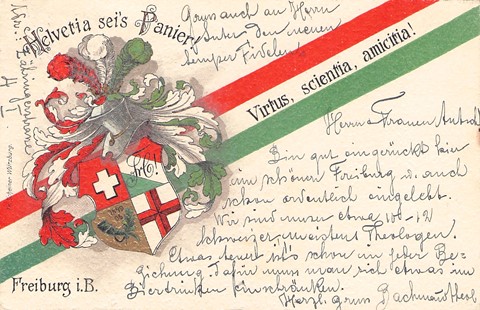 Helvetia sei's Panier!
Gruss auch an Herrn
den neuen
semper Fidelen!
Virtus, scientia, amicitia!
Zähringerstrasse
Herrn Frauen
Bin gut eingerückt hier
im schönen Freiburg u. auch
schon ordentlich eingelebt.
Wir sind unser etwa 10-12
Schweizer meistens Theologen.
Etwas teuer ist's schon in jeder Be-
ziehung. Dafür muss man sich etwas im
Biertrinken einschränken.
Herzl. Gruss Bachmann
Freiburg i.B.